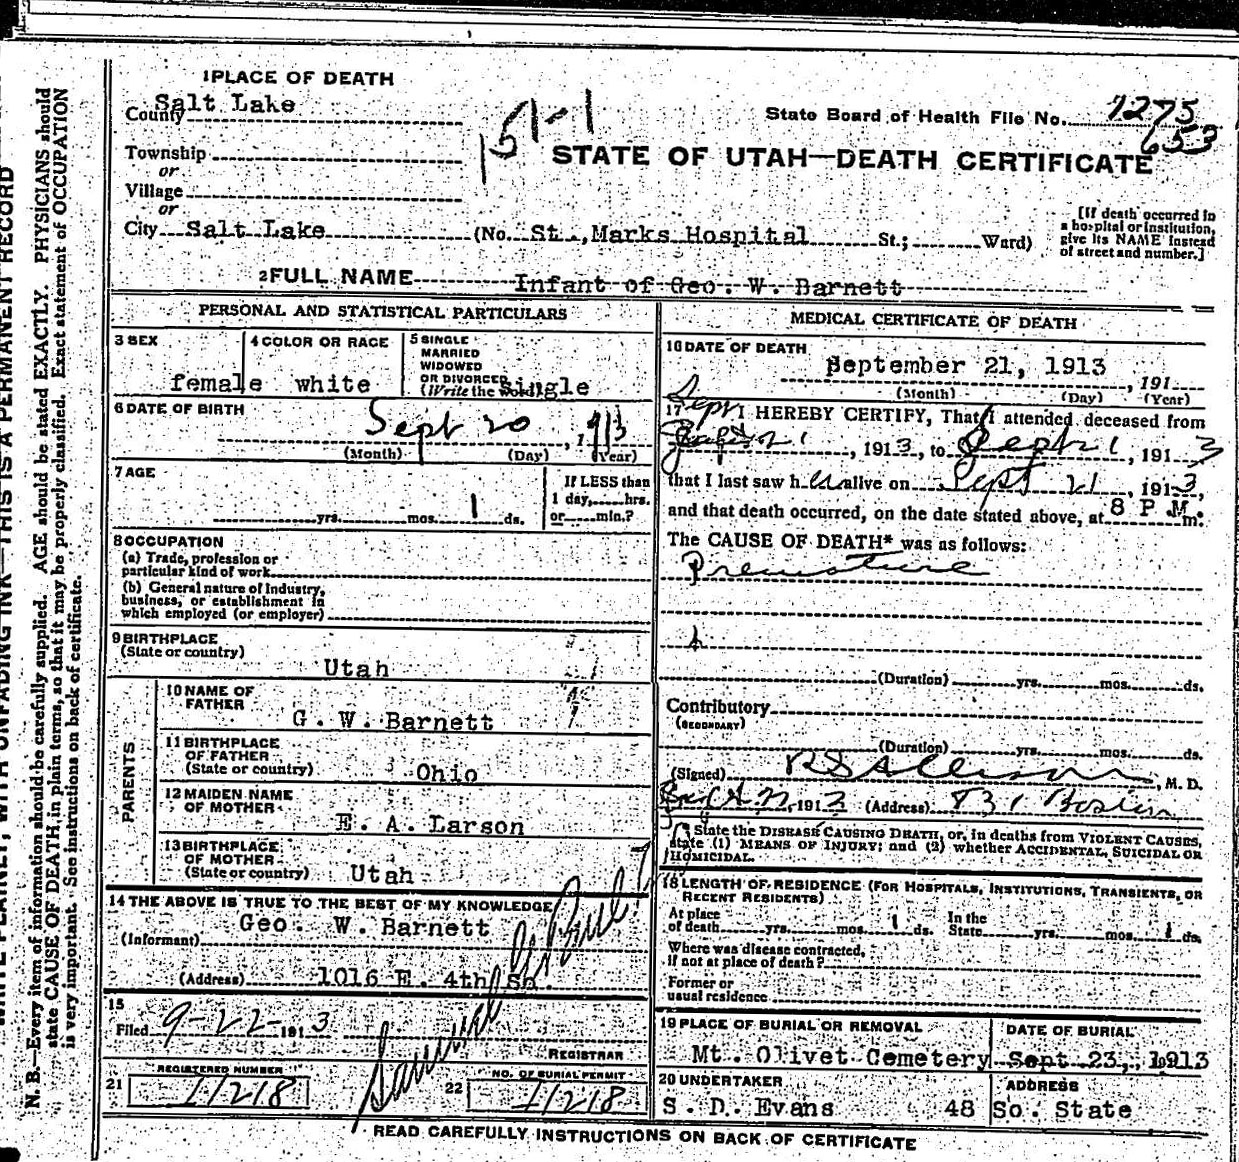 1 PLACE OF DEATH
County Salt Lake
151-1
State Board of Health File No. 1275
653
Township
or
Village
or
City Salt Lake (No. St., Marks Hospital St.; Ward)
STATE OF UTAH—DEATH CERTIFICATE
[If death occurred in
a hospital or institution,
give its NAME instead
of street and number.]
2 FULL NAME Infant of Geo. W. Barnett
PERSONAL AND STATISTICAL PARTICULARS
3 SEX female
4 COLOR OR RACE white
5 SINGLE
MARRIED
WIDOWED
OR DIVORCED
(Write the word) single
6 DATE OF BIRTH
Sept 20, 1913
(Month) (Day) (Year)
7 AGE
yrs. mos. 1 ds.
If LESS than
1 day, hrs.
or min.?
8 OCCUPATION
(a) Trade, profession or
particular kind of work
(b) General nature of industry,
business, or establishment in
which employed (or employer)
9 BIRTHPLACE
(State or country)
Utah
PARENTS
10 NAME OF
FATHER
G. W. Barnett
11 BIRTHPLACE
OF FATHER
(State or country) Ohio
12 MAIDEN NAME
OF MOTHER
E. A. Larson
13 BIRTHPLACE
OF MOTHER
(State or country) Utah
14 THE ABOVE IS TRUE TO THE BEST OF MY KNOWLEDGE
(Informant) Geo. W. Barnett
(Address) 1016 E. 4th So.
15
Filed 9-22-1913
Samuel G. Paul
REGISTRAR
21 REGISTERED NUMBER 1218
22 NO. OF BURIAL PERMIT 1218
MEDICAL CERTIFICATE OF DEATH
16 DATE OF DEATH
September 21, 1913, 191
(Month) (Day) (Year)
17 I HEREBY CERTIFY, That I attended deceased from
Sept 21, 1913, to Sept 21, 1913
that I last saw her alive on Sept 21, 1913,
and that death occurred, on the date stated above, at 8 P.M. m.
The CAUSE OF DEATH* was as follows:
Premature
(Duration) yrs. mos. ds.
Contributory
(SECONDARY)
(Duration) yrs. mos. ds.
(Signed) R S Allison, M. D.
22, 1913 (Address) 831 Boston
State the DISEASE CAUSING DEATH, or, in deaths from VIOLENT CAUSES,
state (1) MEANS OF INJURY; and (2) whether ACCIDENTAL, SUICIDAL OR
HOMICIDAL.
18 LENGTH OF RESIDENCE (FOR HOSPITALS, INSTITUTIONS, TRANSIENTS, OR
RECENT RESIDENTS)
At place
of death yrs. mos. 1 ds. In the
State yrs. mos. 1 ds.
Where was disease contracted,
if not at place of death?
Former or
usual residence
19 PLACE OF BURIAL OR REMOVAL
Mt. Olivet Cemetery
DATE OF BURIAL
Sept. 23, 1913
20 UNDERTAKER
S. D. Evans 48
ADDRESS
So. State
READ CAREFULLY INSTRUCTIONS ON BACK OF CERTIFICATE
WRITE PLAINLY, WITH UNFADING INK—THIS IS A PERMANENT RECORD
N. B.—Every item of information should be carefully supplied. AGE should be stated EXACTLY. PHYSICIANS should
state CAUSE OF DEATH in plain terms, so that it may be properly classified. Exact statement of OCCUPATION
is very important. See instructions on back of certificate.